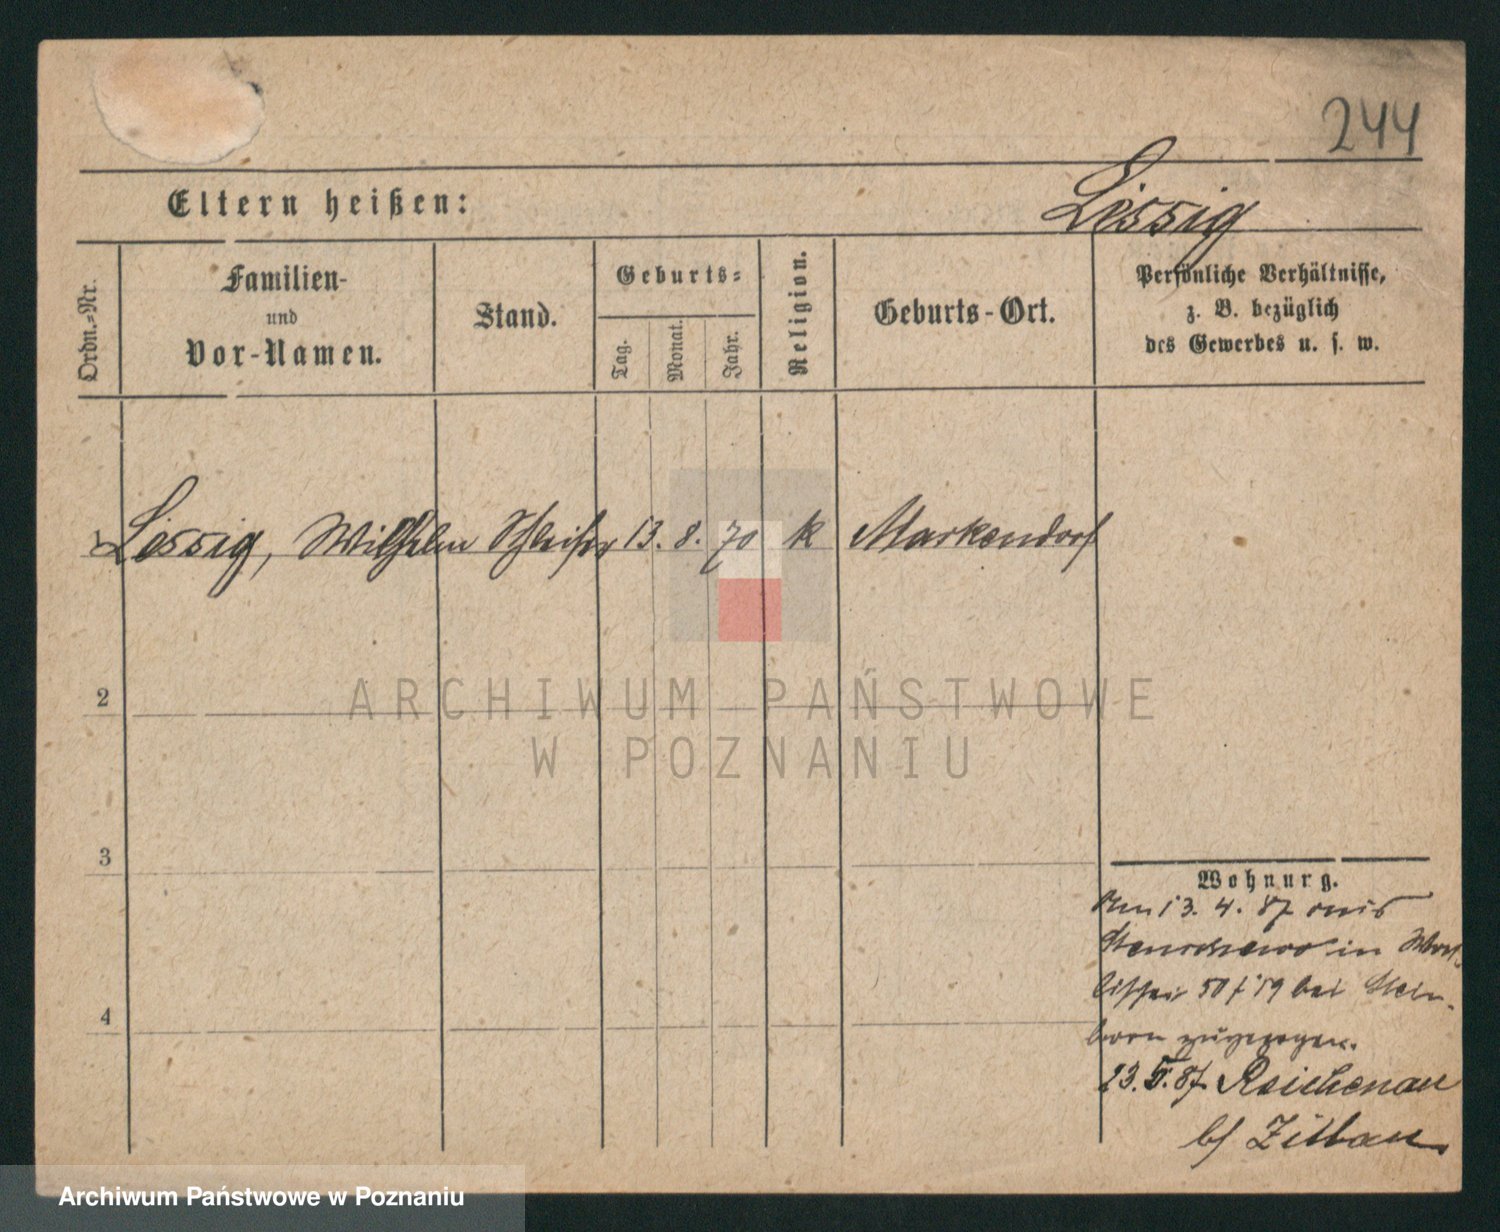 244
Eltern heißen:
Lissig
Ordn.-Nr.
Familien-
und
Vor-Namen.
Stand.
Geburts-
Tag.
Monat.
Jahr.
Religion.
Geburts-Ort.
Persönliche Verhältnisse,
z. B. bezüglich
des Gewerbes u. s. w.
1 Lissig, Wilhelm Schleifer 13. 8. 70 k Markendorf
2
3
4
Wohnung.
Am 13. 4. 87 aus
in
50/19 bei Stein-
born zugezogen.
23. 5. 87 Reichenau
b/ Zittau
ARCHIWUM PAŃSTWOWE
W POZNANIU
Archiwum Państwowe w Poznaniu